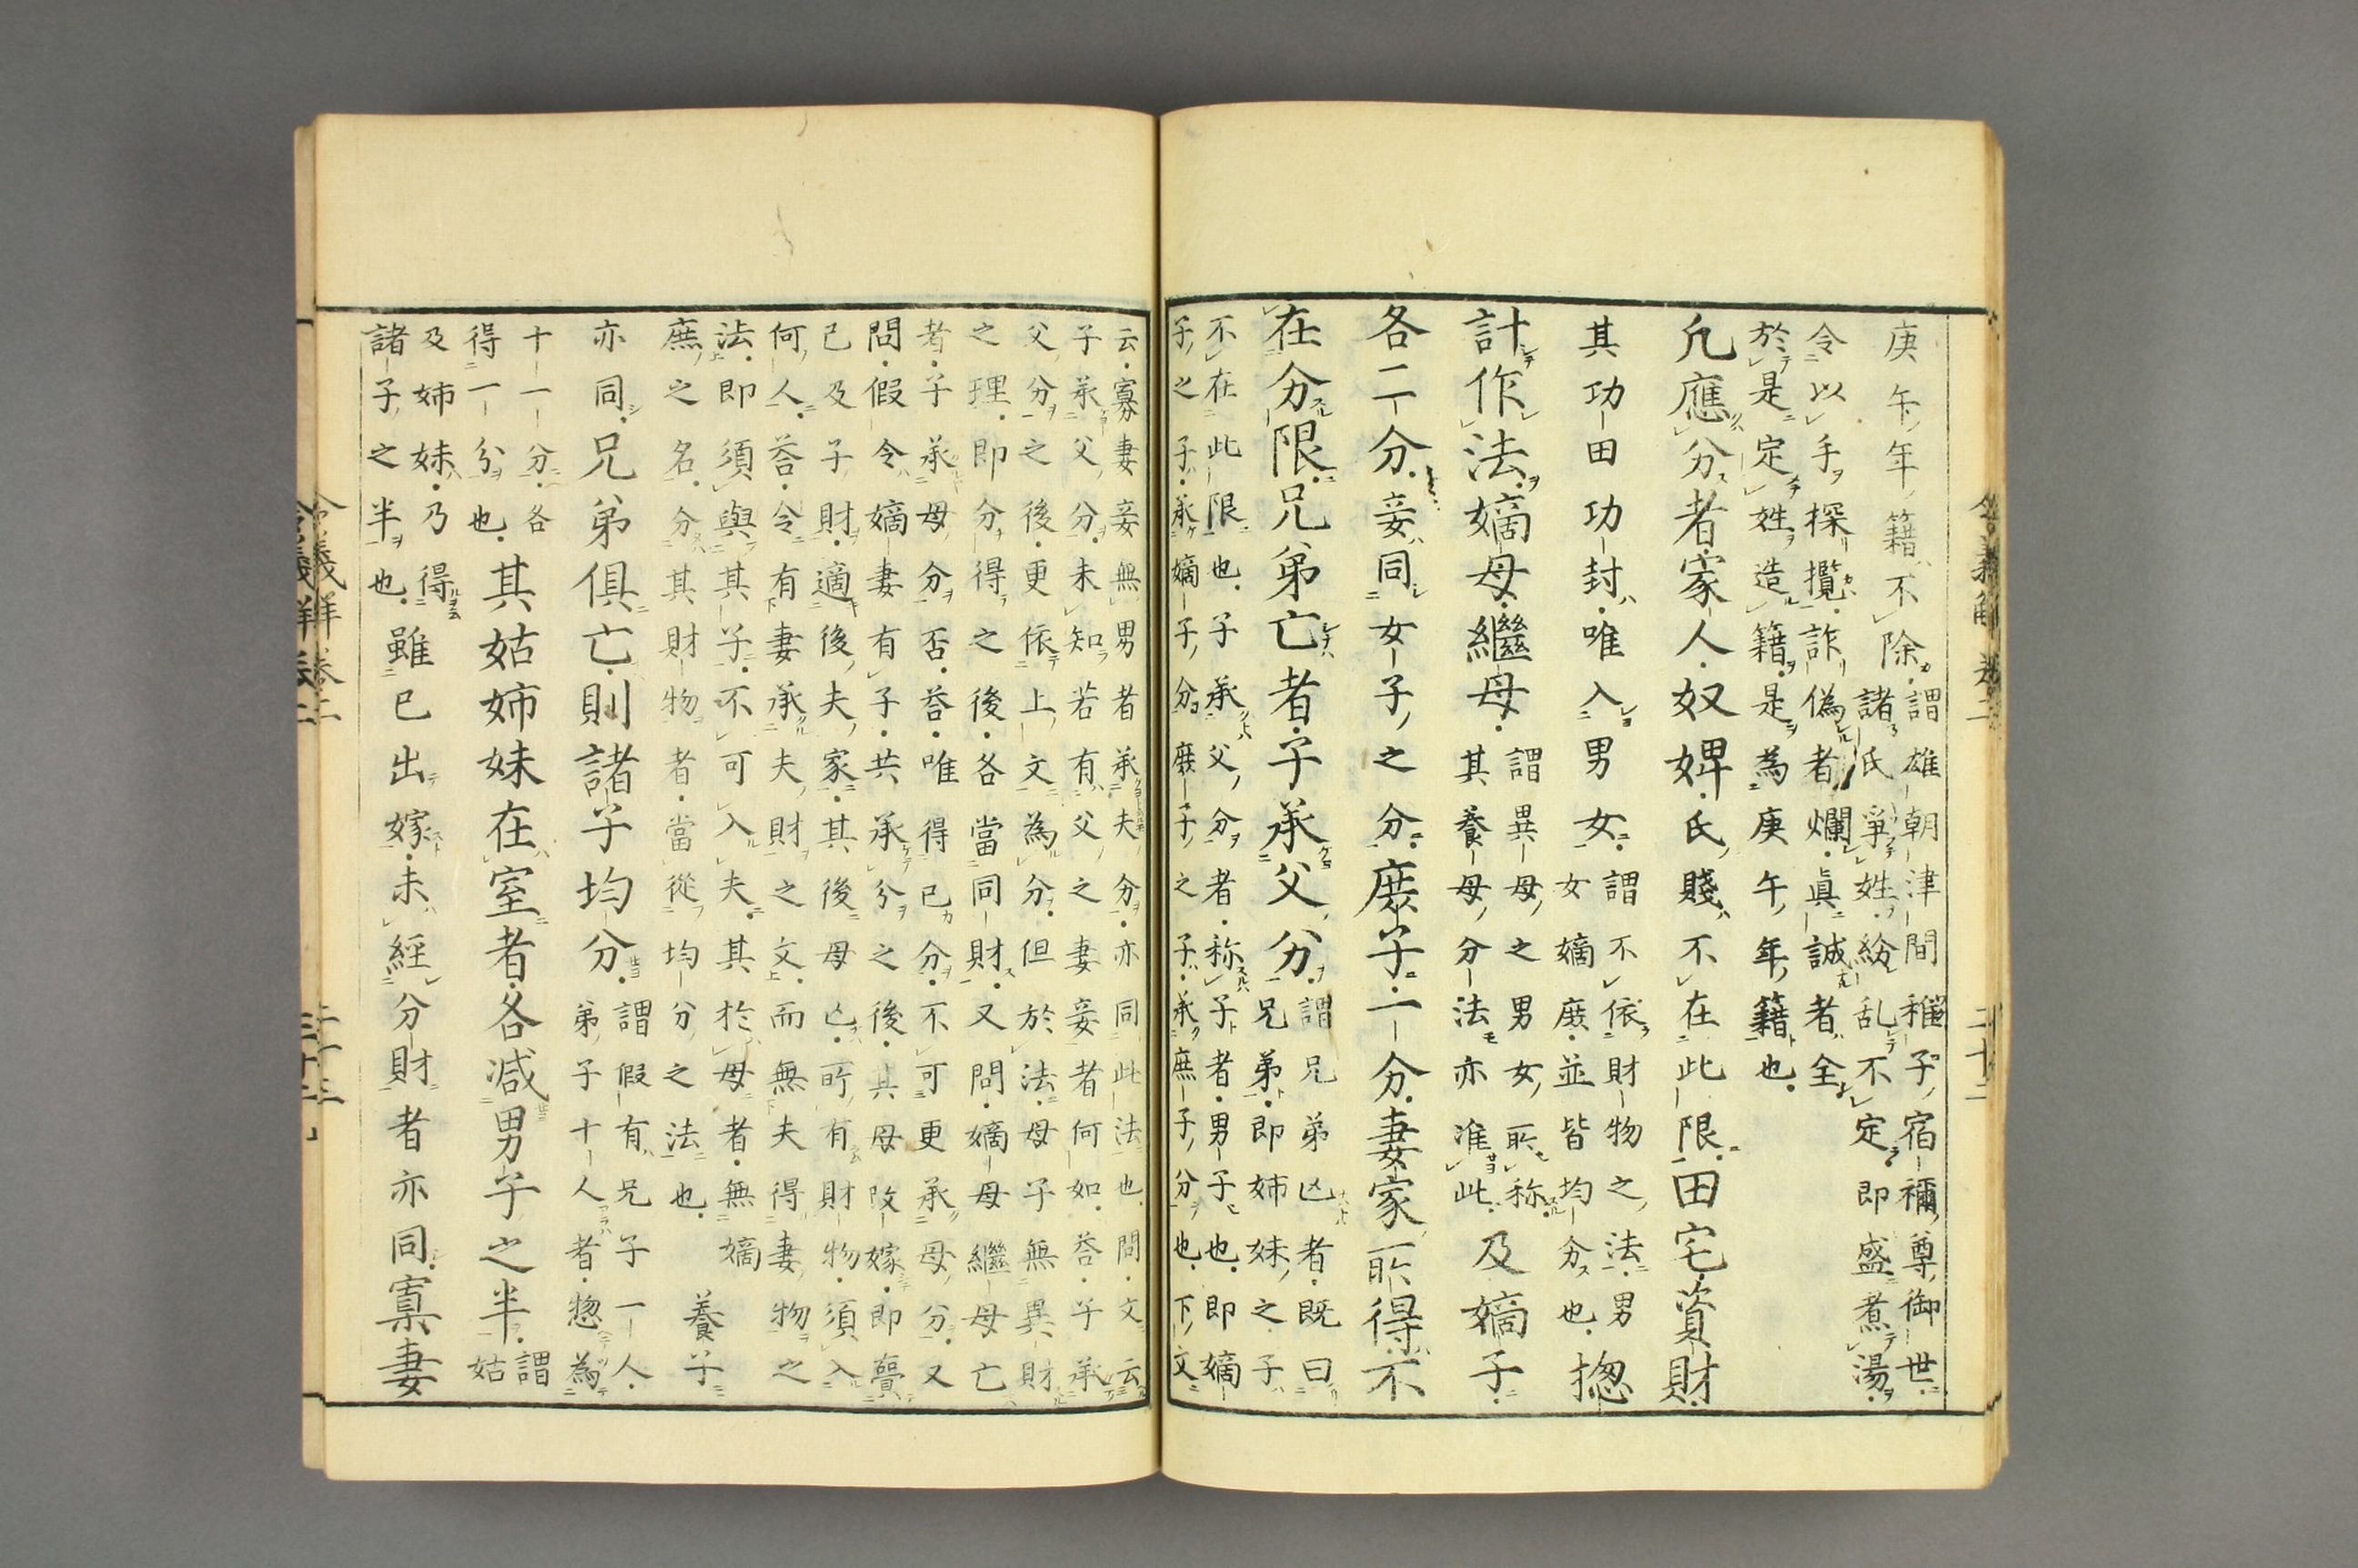 庚午年籍不除謂雄朝津間稚子宿禰尊御世
諸氏爭姓紛乱不定即盛煮湯
令以手探攬詐偽者爛真誠者全
於是定姓造籍是為庚午年籍也
凡應分者家人奴婢氏賤不在此限田宅資財
其功田功封唯入男女謂不依財物之法男
女嫡庶並皆均分也惣
計作法嫡母繼母謂異母之男女所称
其養母分法亦准此及嫡子
各二分妾同女子之分庶子一分妻家所得不
在分限兄弟亡者子承父分謂兄弟亡者既曰
兄弟即姉妹之子
不在此限也子承父分者称子者男子也即嫡
子之子承嫡子分庶子之子承庶子分也下文
云寡妻妾無男者承夫分亦同此法也問文云
子承父分未知若有父之妻妾者何如荅子承
父分之後更依上文為分但於法母子無異財
之理即分得之後各當同財又問嫡母繼母亡
者子承母分否荅唯得已分不可更承母分又
問假令嫡妻有子共承分之後其母改嫁即賷
已及子財適後夫家其後母亡所有財物須入
何人荅令有妻承夫財之文而無夫得妻物之
法即須與其子不可入夫其於母者無嫡
庶之名分其財物者當從均分之法也養子
亦同兄弟俱亡則諸子均分謂假有兄子一人
弟子十人者惣為
十一分各
得一分也其姑姉妹在室者各減男子之半謂
姑
及姉妹乃得
諸子之半也雖已出嫁未經分財者亦同寡妻